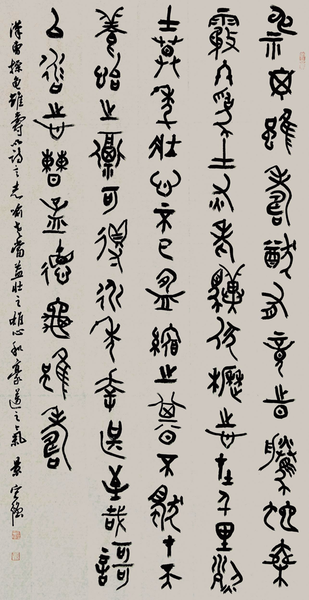 神龜雖壽猷有竟時騰蛇乘
霧終為土灰老驥伏櫪志在千里烈
士莫年壯心不已盈縮之朞不但在天
養怡之福可得永年幸甚至哉歌
以詠志曹孟德龜雖壽
漢曹操龜雖壽詩之老當益壯之雄心和豪邁之氣